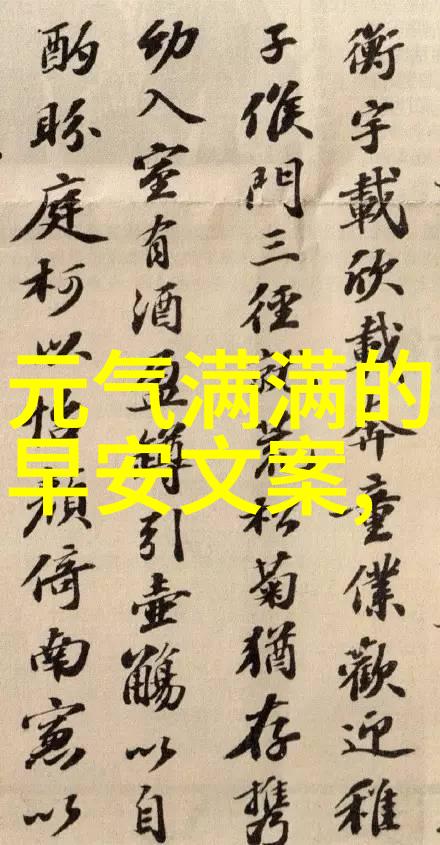 衡宇載欣載奔童僕歡迎稚
子候門三徑就荒松菊猶存携
幼入室有酒盈罇引壺觴以自
酌眄庭柯以怡顏倚南窻以
元气满满的
早安文案,